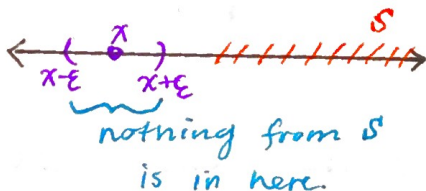 S
x
x-ε x+ε
nothing from S
is in here.